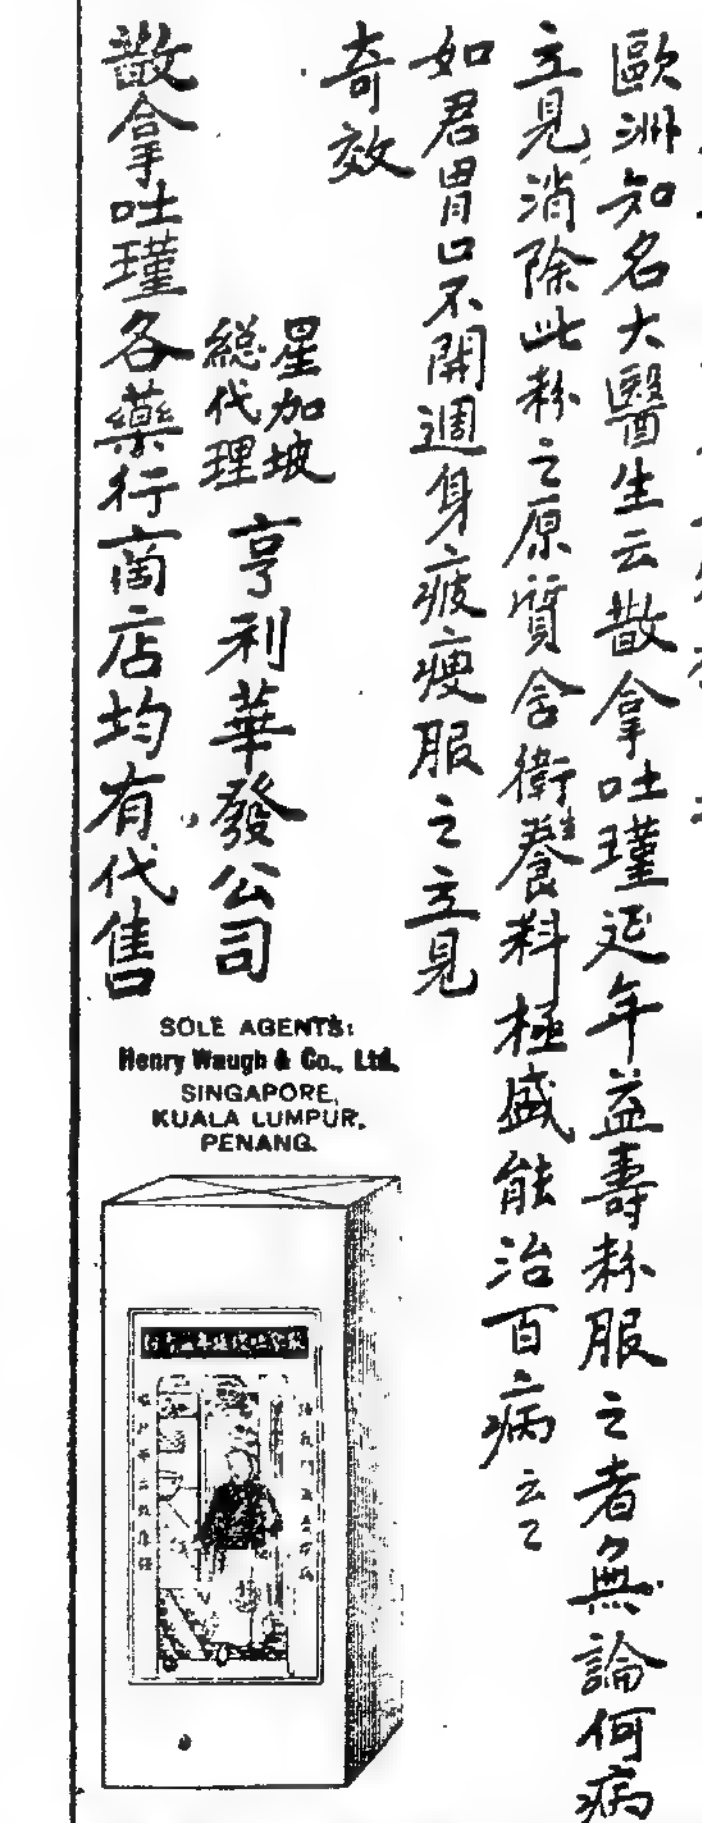 歐洲知名大醫生云散拿吐瑾延年益壽粉服之者無論何病
立見消除此粉之原質含衛養料極盛能治百病云云
如君胃口不開週身疲瘦服之立見
奇效
星加坡
総代理
亨利華發公司
散拿吐瑾各藥行商店均有代售
SOLE AGENTS:
Henry Waugh & Co., Ltd.
SINGAPORE,
KUALA LUMPUR,
PENANG.